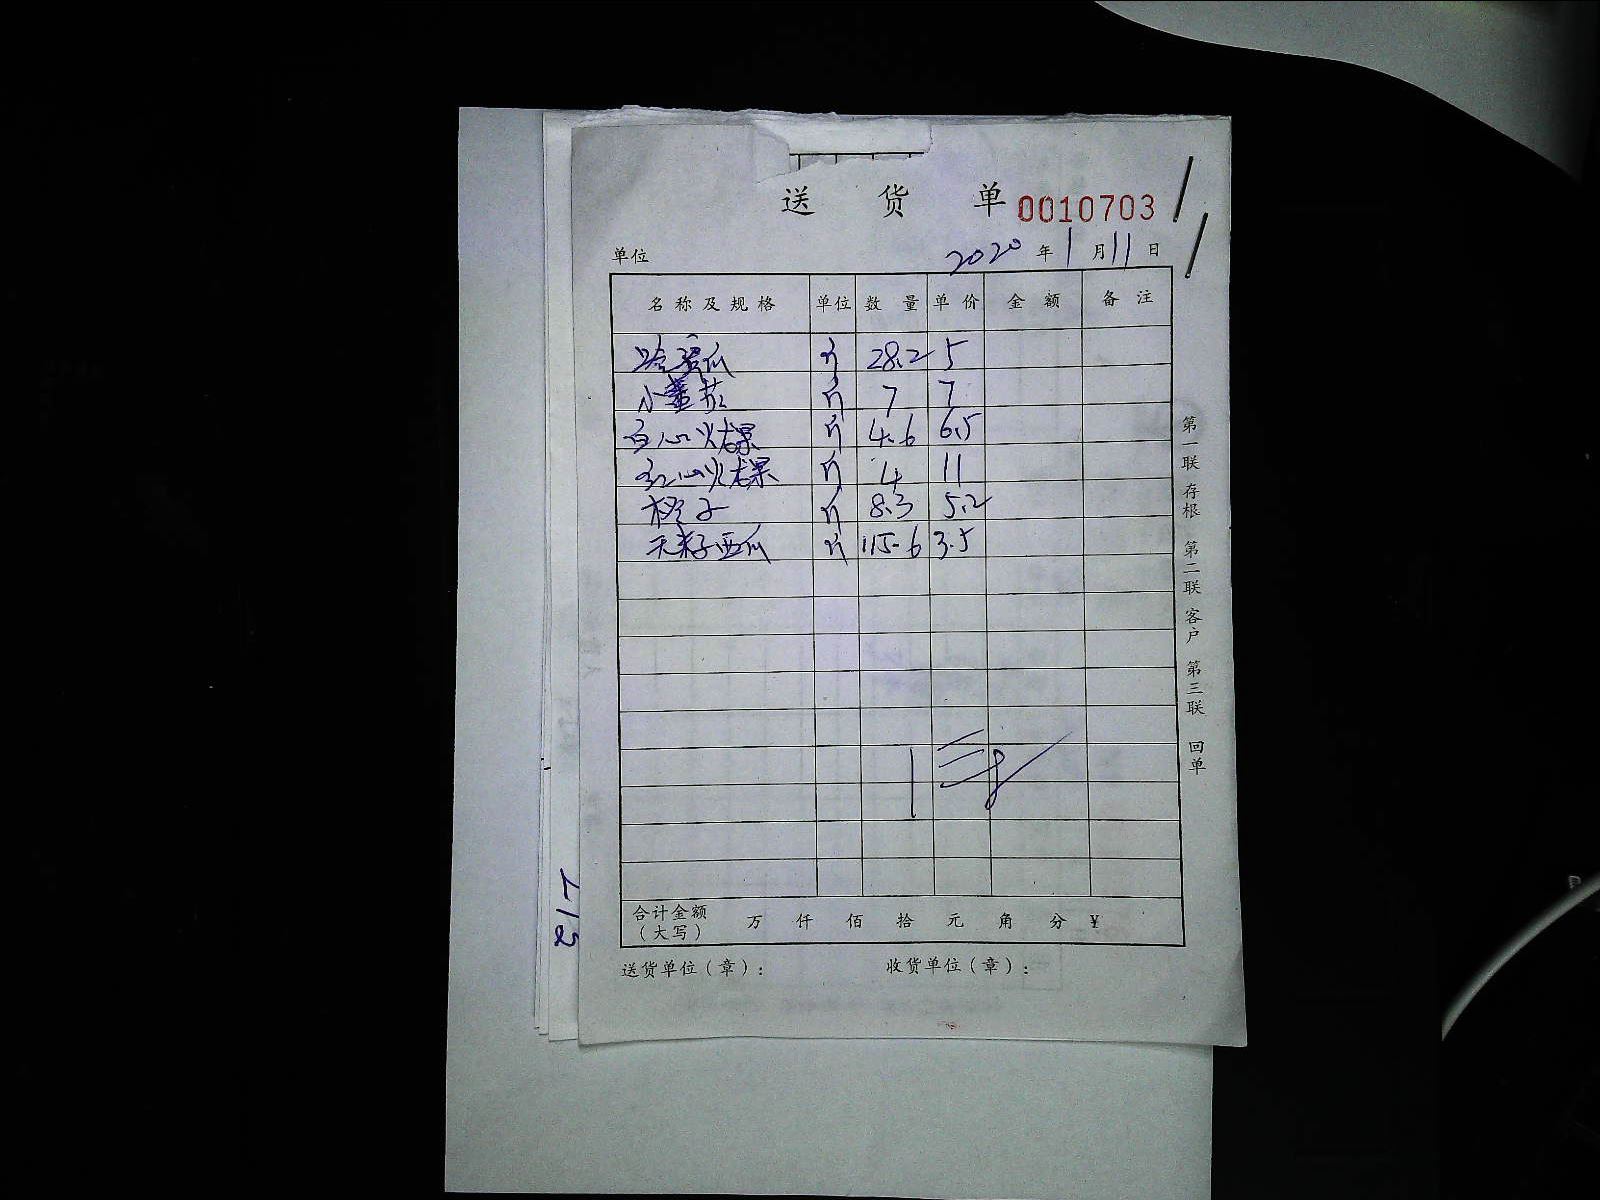 送 货 单 0010703
单位 2020 年 1 月 11 日
名称及规格 单位 数量 单价 金额 备注
哈蜜瓜 斤 28.2 5
小番茄 斤 7 7
白心火龙果 斤 4.6 6.5
红心火龙果 斤 4 11
橙子 斤 8.3 5.2
无籽西瓜 斤 115.6 3.5
合计金额(大写) 万 仟 佰 拾 元 角 分 ¥
送货单位(章): 收货单位(章):
第一联 存根 第二联 客户 第三联 回单